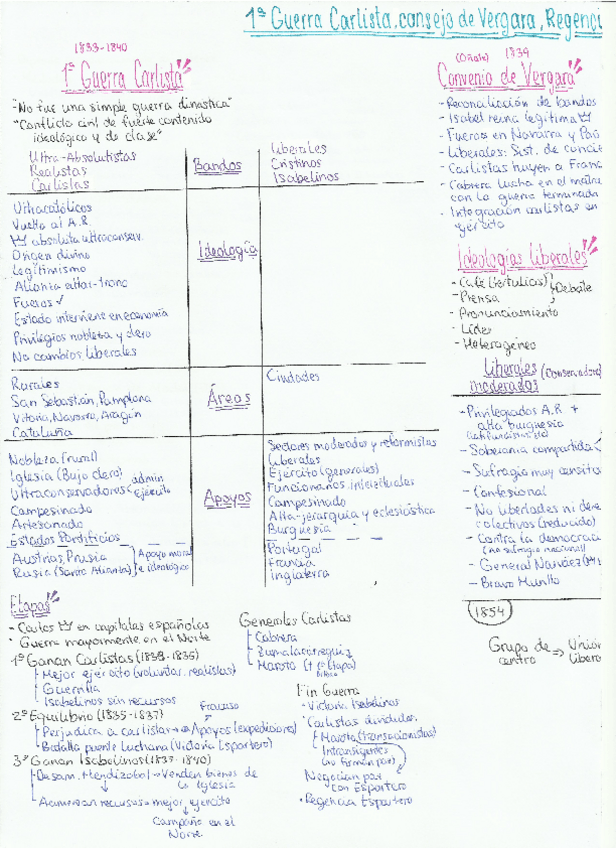 1ª Guerra Carlista, consejo de Vergara, Regenci
1833-1840
1ª Guerra Carlista
"No fue una simple guerra dinastica"
"Conflicto civil de fuerte contenido
ideológico y de clase"
Ultra-Absolutistas
Realistas
Carlistas
Bandos
Liberales
Cristinos
Isabelinos
Ultracatólicos
Vuelta al A.R.
absoluta ultraconserv.
Origen divino
Legitimismo
Alianza altar-trono
Fueros ✓
Estado interviene en economía
Privilegios nobleza y clero
No cambios liberales
Ideología
Rurales
San Sebastián, Pamplona
Vitoria, Navarra, Aragón
Cataluña
Áreas
Ciudades
Nobleza (rural)
Iglesia (Bajo clero)
Ultraconservadores admin
ejército
Campesinado
Artesanado
Estados Pontificios
Austrias, Prusia
Rusia (Santa Alianza)
Apoyo moral
e ideológico
Apoyos
Sectores moderados y reformistas
liberales
Ejército (generales)
Funcionarios, intelectuales
Campesinado
Alta-jerarquía y eclesiástica
Burguesía
Portugal
Francia
Inglaterra
Etapas
- Carlos en capitales españolas
- Guerra mayormente en el Norte
1º Ganan Carlistas (1833-1835)
Mejor ejército (voluntar. realistas)
Guerrilla
Isabelinos sin recursos
Fracaso
2º Equilibrio (1835-1837)
Perjudica a carlistas → Apoyos (expediciones)
Batalla puente Luchana (Victoria Espartero)
3º Ganan Isabelinos (1837-1840)
Desam. Mendizabal → Venden bienes de
la Iglesia
Aumentan recursos → mejor ejército
Campaña en el
Norte
Generales Carlistas
Cabrera
Zumalacarregui
Maroto
Fin Guerra
- Victoria Isabelinos
- Carlistas divididos
Maroto (transaccionistas)
Intransigentes
(no firman paz)
Negocian paz
con Espartero
- Regencia Espartero
(Oñate) 1839
Convenio de Vergara
- Reconciliación de bandos
- Isabel reina legítima
- Fueros en Navarra y Paí
- Liberales: Sist. de
- Carlistas huyen a Franc
- Cabrera lucha en el
con la guerra terminada
- Integración carlistas en
ejército
Ideologías liberales
- Café (tertulias)
- Prensa
Debate
- Pronunciamiento
- Líder
- Heterogéneo
Liberales (Conservadore
moderados
- Privilegiados A.R. +
alta burguesía
- Soberanía compartida
- Sufragio muy censita
- Confesional
- No libertades ni dere
colectivos (reducido)
- Contra la democrac
(no sufragio nacional)
- General Narváez
- Bravo Murillo
1854
Grupo de centro → Unión
Libera